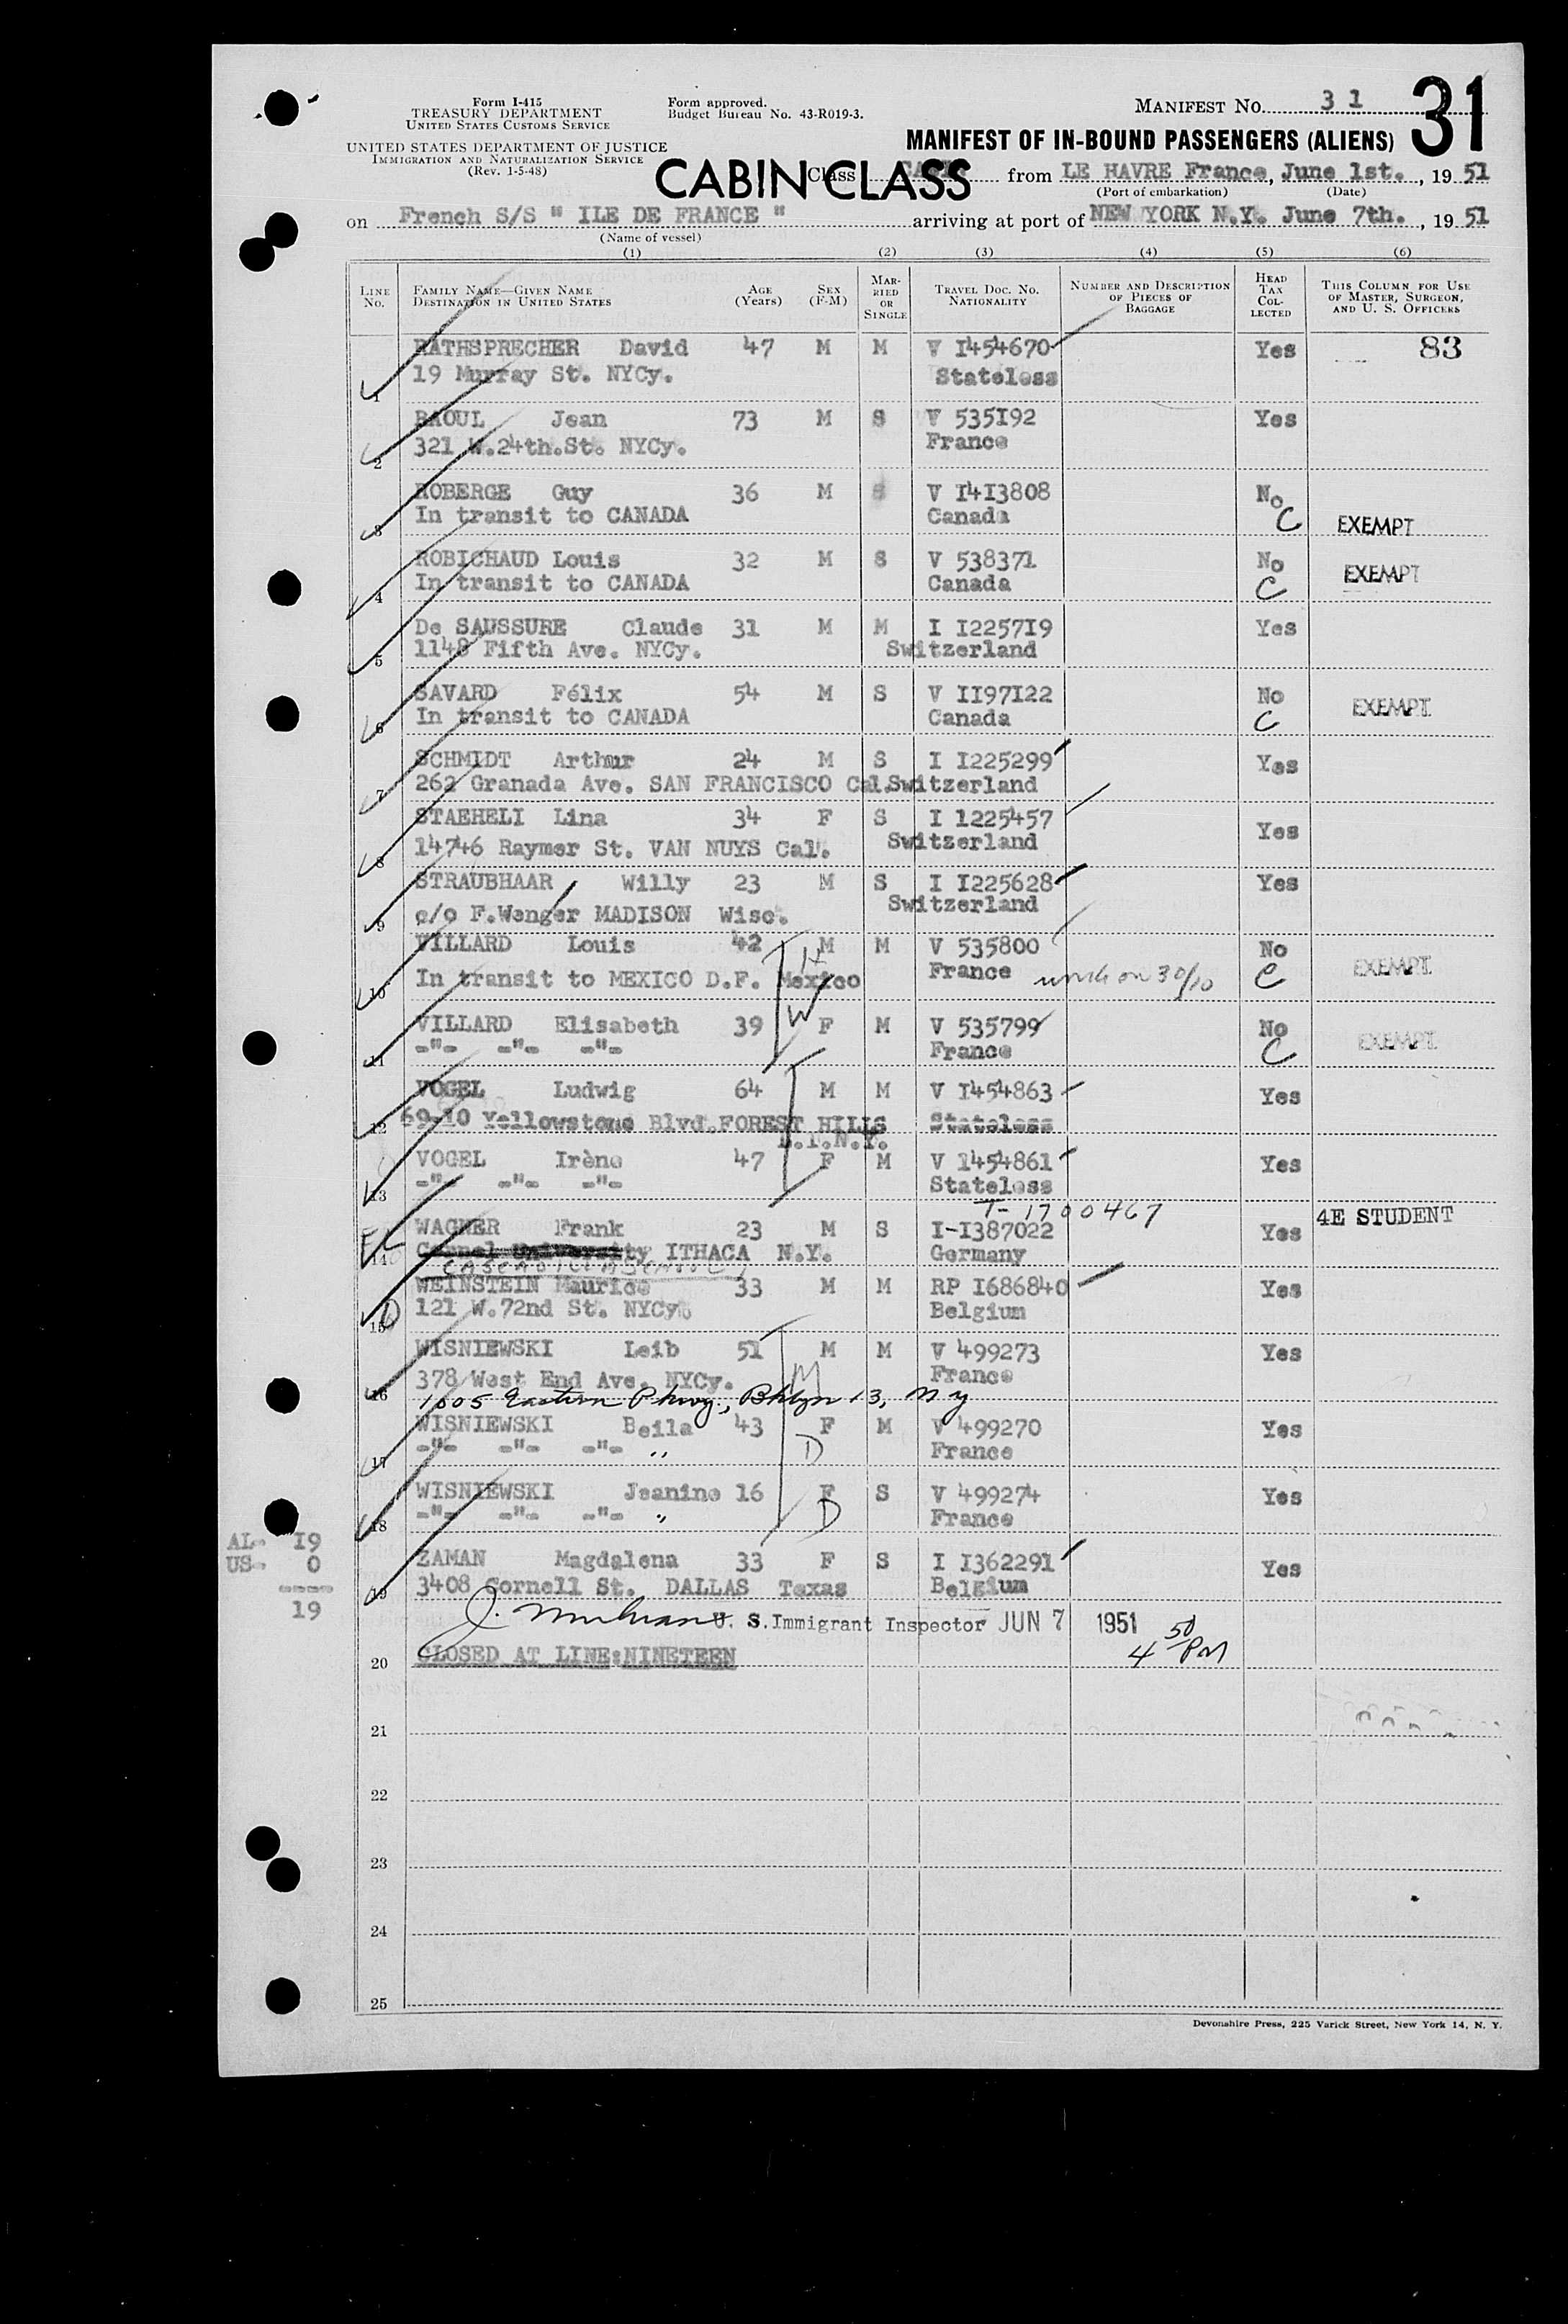 Form I-415
TREASURY DEPARTMENT
UNITED STATES CUSTOMS SERVICE
UNITED STATES DEPARTMENT OF JUSTICE
IMMIGRATION AND NATURALIZATION SERVICE
(Rev. 1-5-48)
Form approved.
Budget Bureau No. 43-R019-3.
MANIFEST NO. 31
31
MANIFEST OF IN-BOUND PASSENGERS (ALIENS)
CABIN CLASS
Class from LE HAVRE France, June 1st., 19 51
(Port of embarkation) (Date)
on French S/S " ILE DE FRANCE " arriving at port of NEW YORK N.Y. June 7th., 19 51
(Name of vessel)
(1) (2) (3) (4) (5) (6)
LINE NO.
FAMILY NAME—GIVEN NAME
DESTINATION IN UNITED STATES
AGE (Years)
SEX (F-M)
MARRIED OR SINGLE
TRAVEL DOC. NO. NATIONALITY
NUMBER AND DESCRIPTION OF PIECES OF BAGGAGE
HEAD TAX COLLECTED
THIS COLUMN FOR USE OF MASTER, SURGEON, AND U. S. OFFICERS
RATHSPRECHER David 47 M M V I454670 Yes 83
1 19 Murray St. NYCy. Stateless
RAOUL Jean 73 M S V 535I92 Yes
2 321 W.24th.St. NYCy. France
ROBERGE Guy 36 M S V I4I3808 No
3 In transit to CANADA Canada C EXEMPT
ROBICHAUD Louis 32 M S V 538371 No EXEMPT
4 In transit to CANADA Canada C
De SAUSSURE Claude 31 M M I I2257I9 Yes
5 1148 Fifth Ave. NYCy. Switzerland
SAVARD Félix 54 M S V II97I22 No EXEMPT
6 In transit to CANADA Canada C
SCHMIDT Arthur 24 M S I I225299 Yes
7 262 Granada Ave. SAN FRANCISCO Cal. Switzerland
STAEHELI Lina 34 F S I 1225457 Yes
8 14746 Raymer St. VAN NUYS Cal. Switzerland
STRAUBHAAR Willy 23 M S I I225628 Yes
9 c/o F.Wenger MADISON Wisc. Switzerland
VILLARD Louis 42 H M M V 535800 No EXEMPT
10 In transit to MEXICO D.F. Mexico France 30/10 C
VILLARD Elisabeth 39 W F M V 535799 No EXEMPT
11 -"- -"- -"- France C
VOGEL Ludwig 64 M M V I454863 Yes
12 69-10 Yellowstone Blvd.FOREST HILLS Stateless
L.I.N.Y.
VOGEL Irène 47 F M V 1454861 Yes
13 -"- -"- -"- Stateless
T-1700467
WAGNER Frank 23 M S I-I387022 Yes 4E STUDENT
14 Cornel University ITHACA N.Y. Germany
WEINSTEIN Maurice 33 M M RP I686840 Yes
15 121 W.72nd St. NYCy. Belgium
WISNIEWSKI Leib 51 M M V 499273 Yes
16 378 West End Ave. NYCy. M France
1605 Eastern Pkwy., Bklyn 13, N y
WISNIEWSKI Beila 43 F M V 499270 Yes
17 -"- -"- -"- " D France
WISNIEWSKI Jeanine 16 F S V 499274 Yes
18 -"- -"- -"- " D France
ZAMAN Magdalena 33 F S I I362291 Yes
19 3408 Cornell St. DALLAS Texas Belgium
AL- 19
US- 0
----
19
J. U. S. Immigrant Inspector JUN 7 1951
4 50 PM
20 CLOSED AT LINE:NINETEEN
21
22
23
24
25
Devonshire Press, 225 Varick Street, New York 14, N. Y.